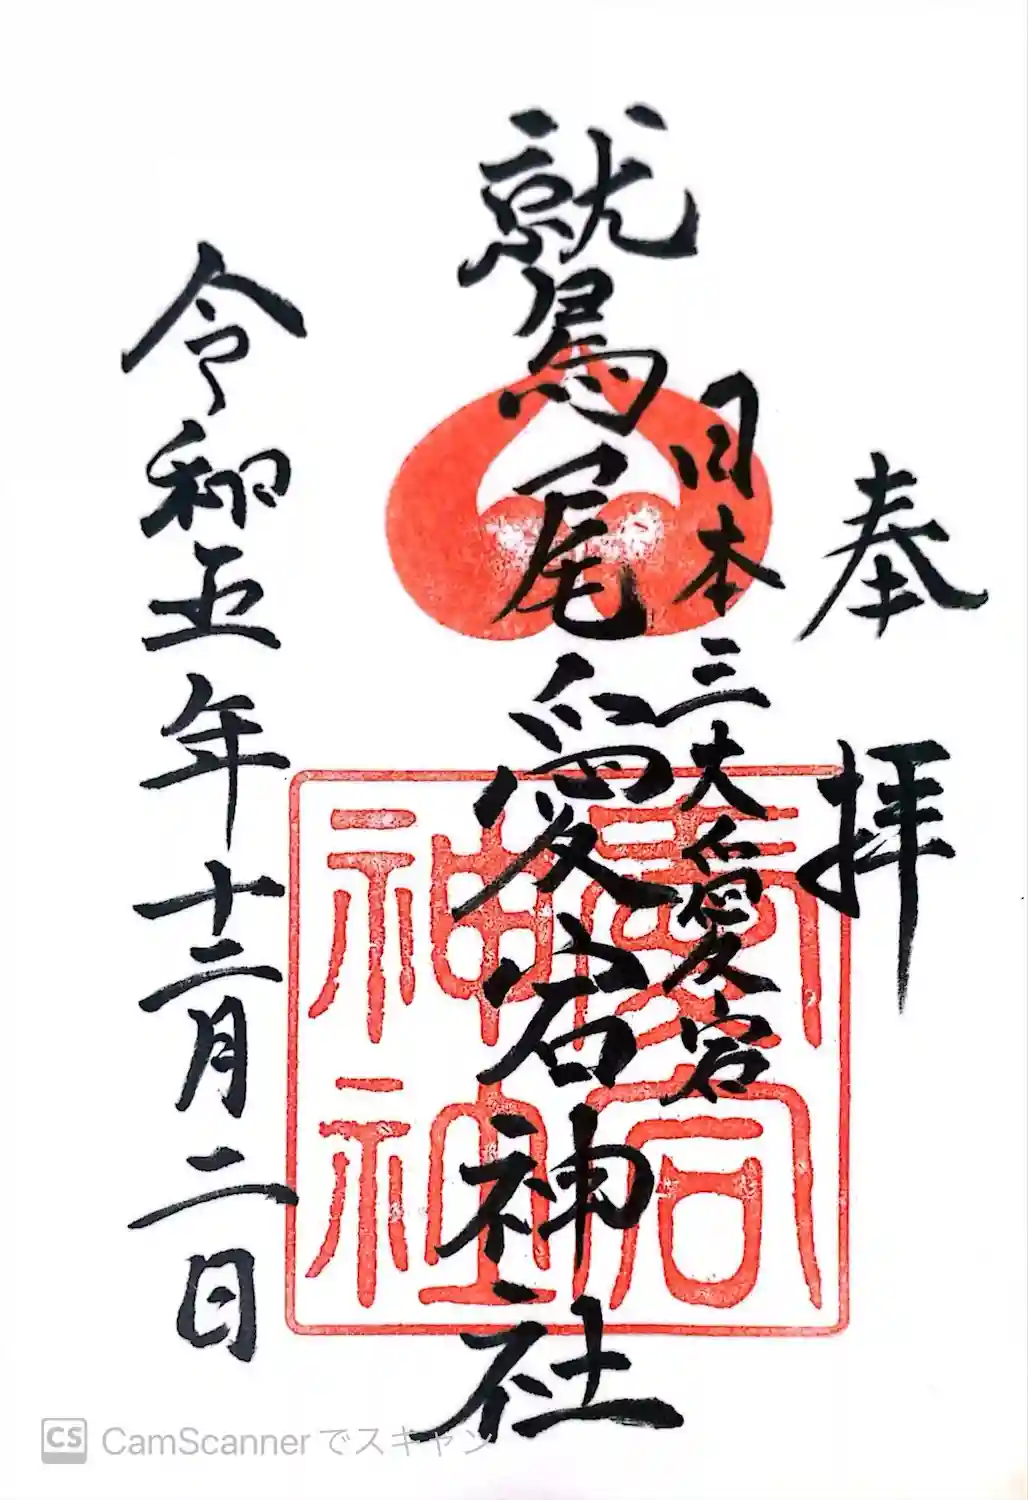 奉拝
日本三大愛宕
鷲尾愛宕神社
令和五年十二月二日
愛宕神社
CS CamScannerでスキャン